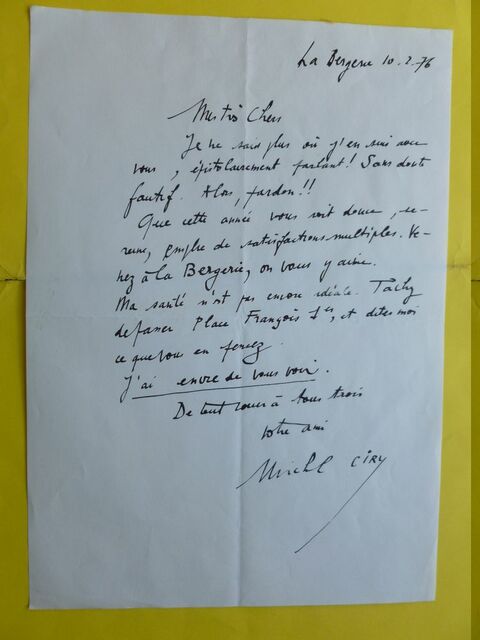 La Bergerie 10.2.76
Mes très Chers
Je ne sais plus où j'en suis avec
vous, épistolairement parlant ! Sans doute
fautif. Alors, pardon !!
Que cette année vous soit douce, se-
reine, emplie de satisfactions multiples. Ve-
nez à la Bergerie, on vous y aime.
Ma santé n'est pas encore idéale. Tachez
de passer Place François 1er, et dites moi
ce que vous en pensez.
J'ai envie de vous voir.
De tout coeur à tous trois
votre ami
Michel CIRY